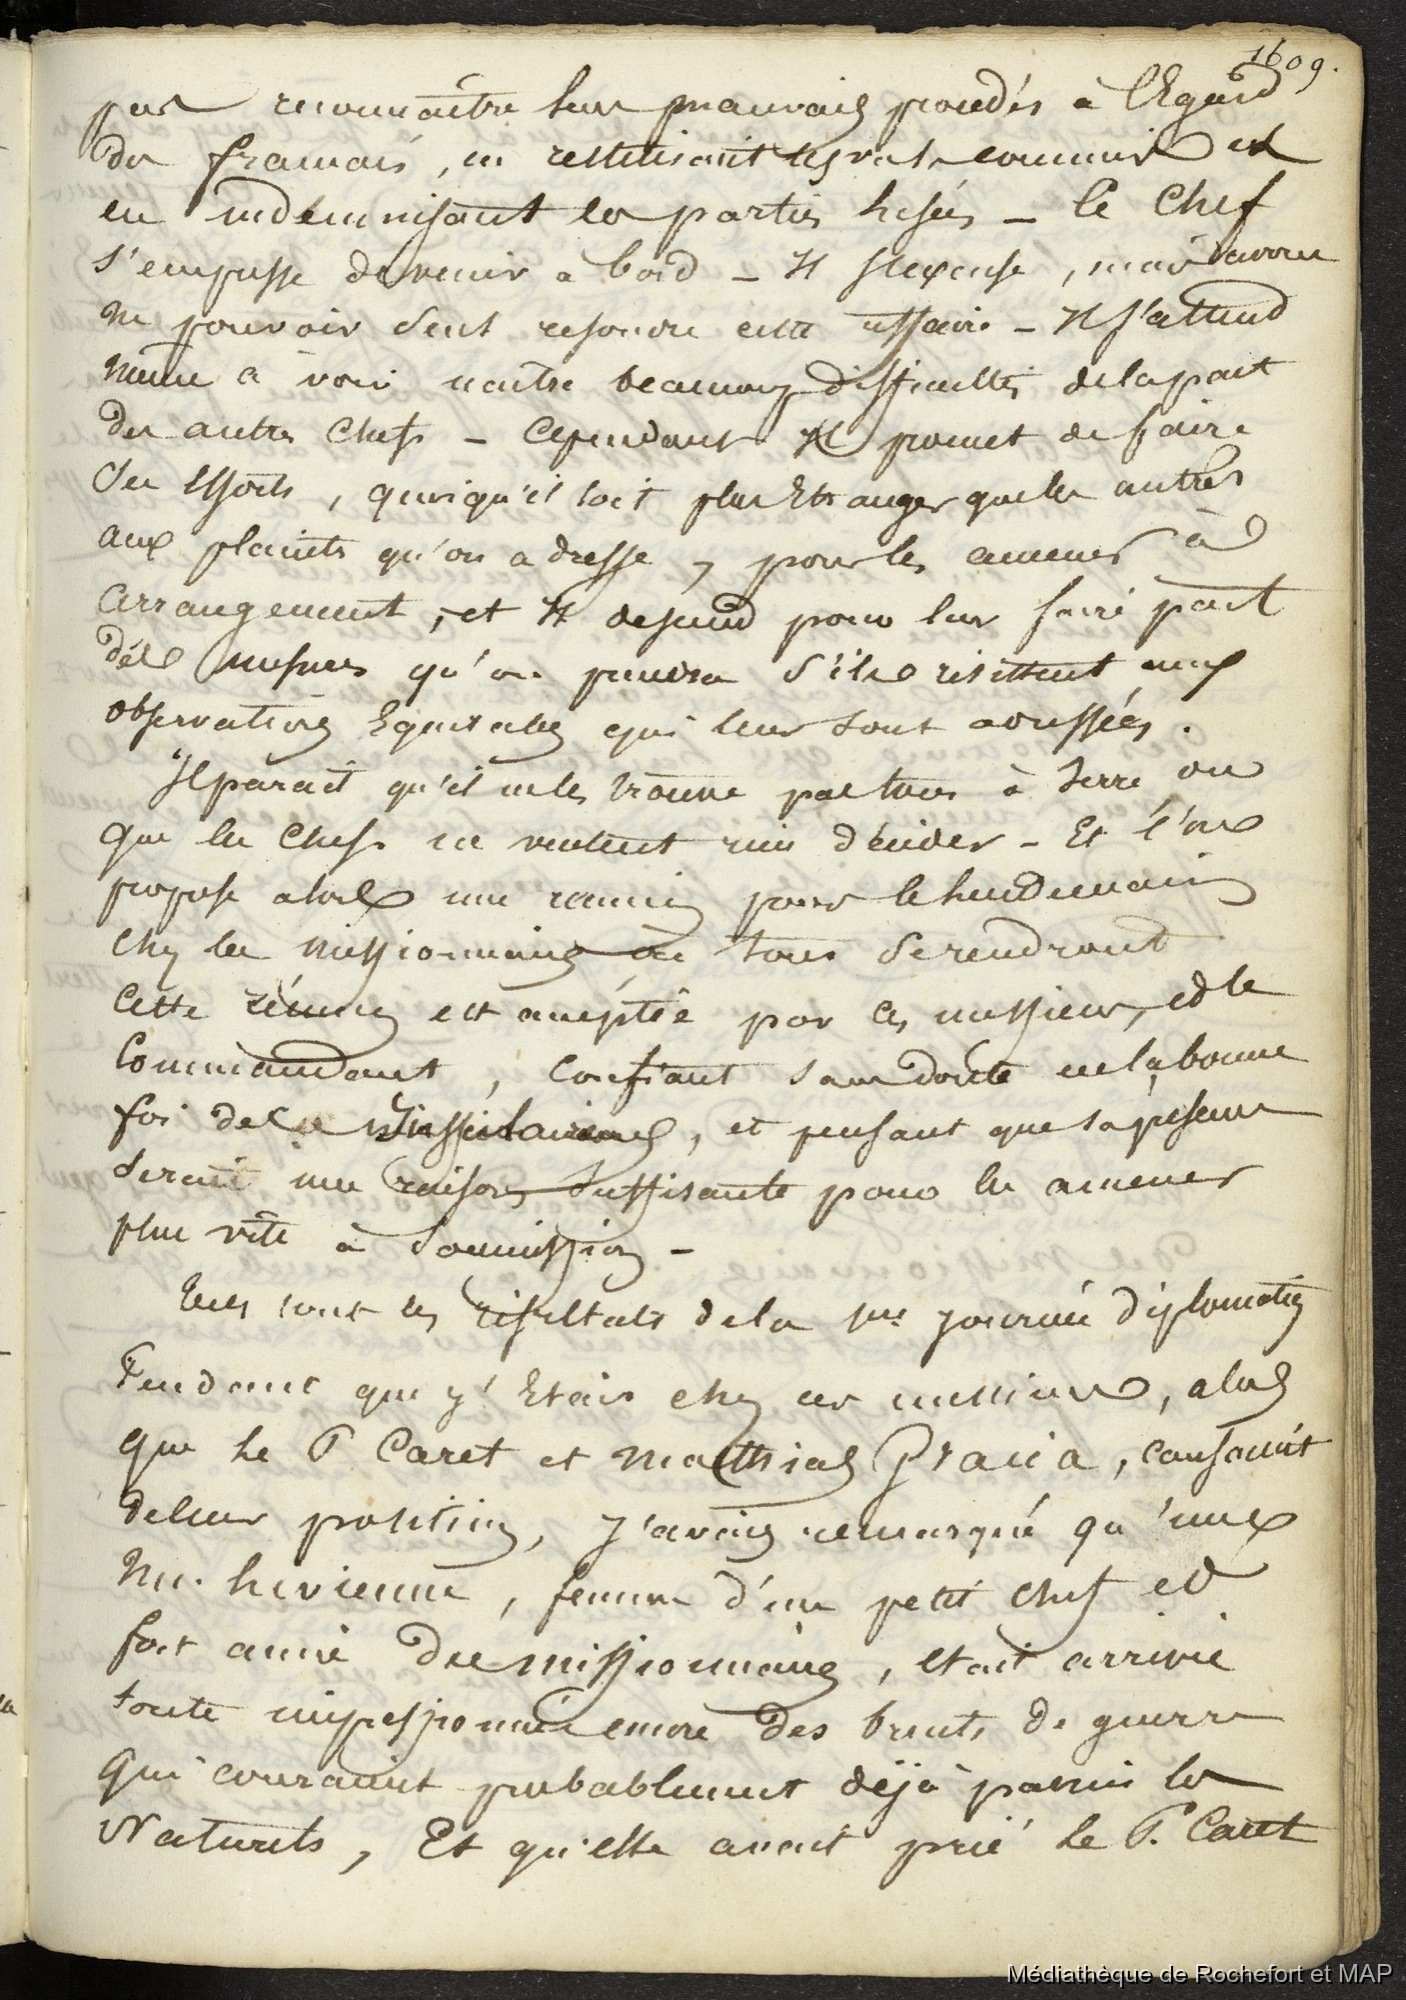 1609.
par reconnaitre leur mauvais procédés à l'Egard
des français, en restituant les vols commis et
en indemnisant les parties lesées – le Chef
s'empresse de venir a bord – Il s'excuse, mais avoue
ne pouvoir seul resoudre cette affaire – Il s'attend
même a voir naitre beaucoup difficultés de la part
des autres Chefs – Cependant Il promet de faire
ses Efforts, quoiqu'il soit plus Etranger que les autres
aux plaintes qu'on adresse, pour les amener à
arrangement, et Il descend pour leur faire part
des mesures qu'on prendra s'ils résistent aux
observations Equitables qui leur sont adressées.
Il parait qu'il ne les trouve pas tous à terre ou
que les Chefs ne veulent rien décider – Et l'on
propose alors une reunion pour le lendemain
chez les missionnaires où tous se rendront
Cette réunion est acceptée par ces messieurs, et le
Commandant, confiant sans doute en la bonne
foi de ces insulaires, et pensant que sa présence
serait une raison suffisante pour les amener
plus vite à soumission –
Tels sont les résultats de la 1ere journée diplomatiq
Pendant que j'Etais chez ces messieurs, alors
que le P Caret et Matthias Gracia, causaient
de leur position, j'avais remarqué qu'une
Nu. hivienne, femme d'un petit chef et
fort amie des missionnaires, etait arrivée
toute impressionnée encore des bruits de guerre
qui couraient probablement déjà parmi les
Naturels, Et qu'elle avait prié le P. Caret
Médiathèque de Rochefort et MAP